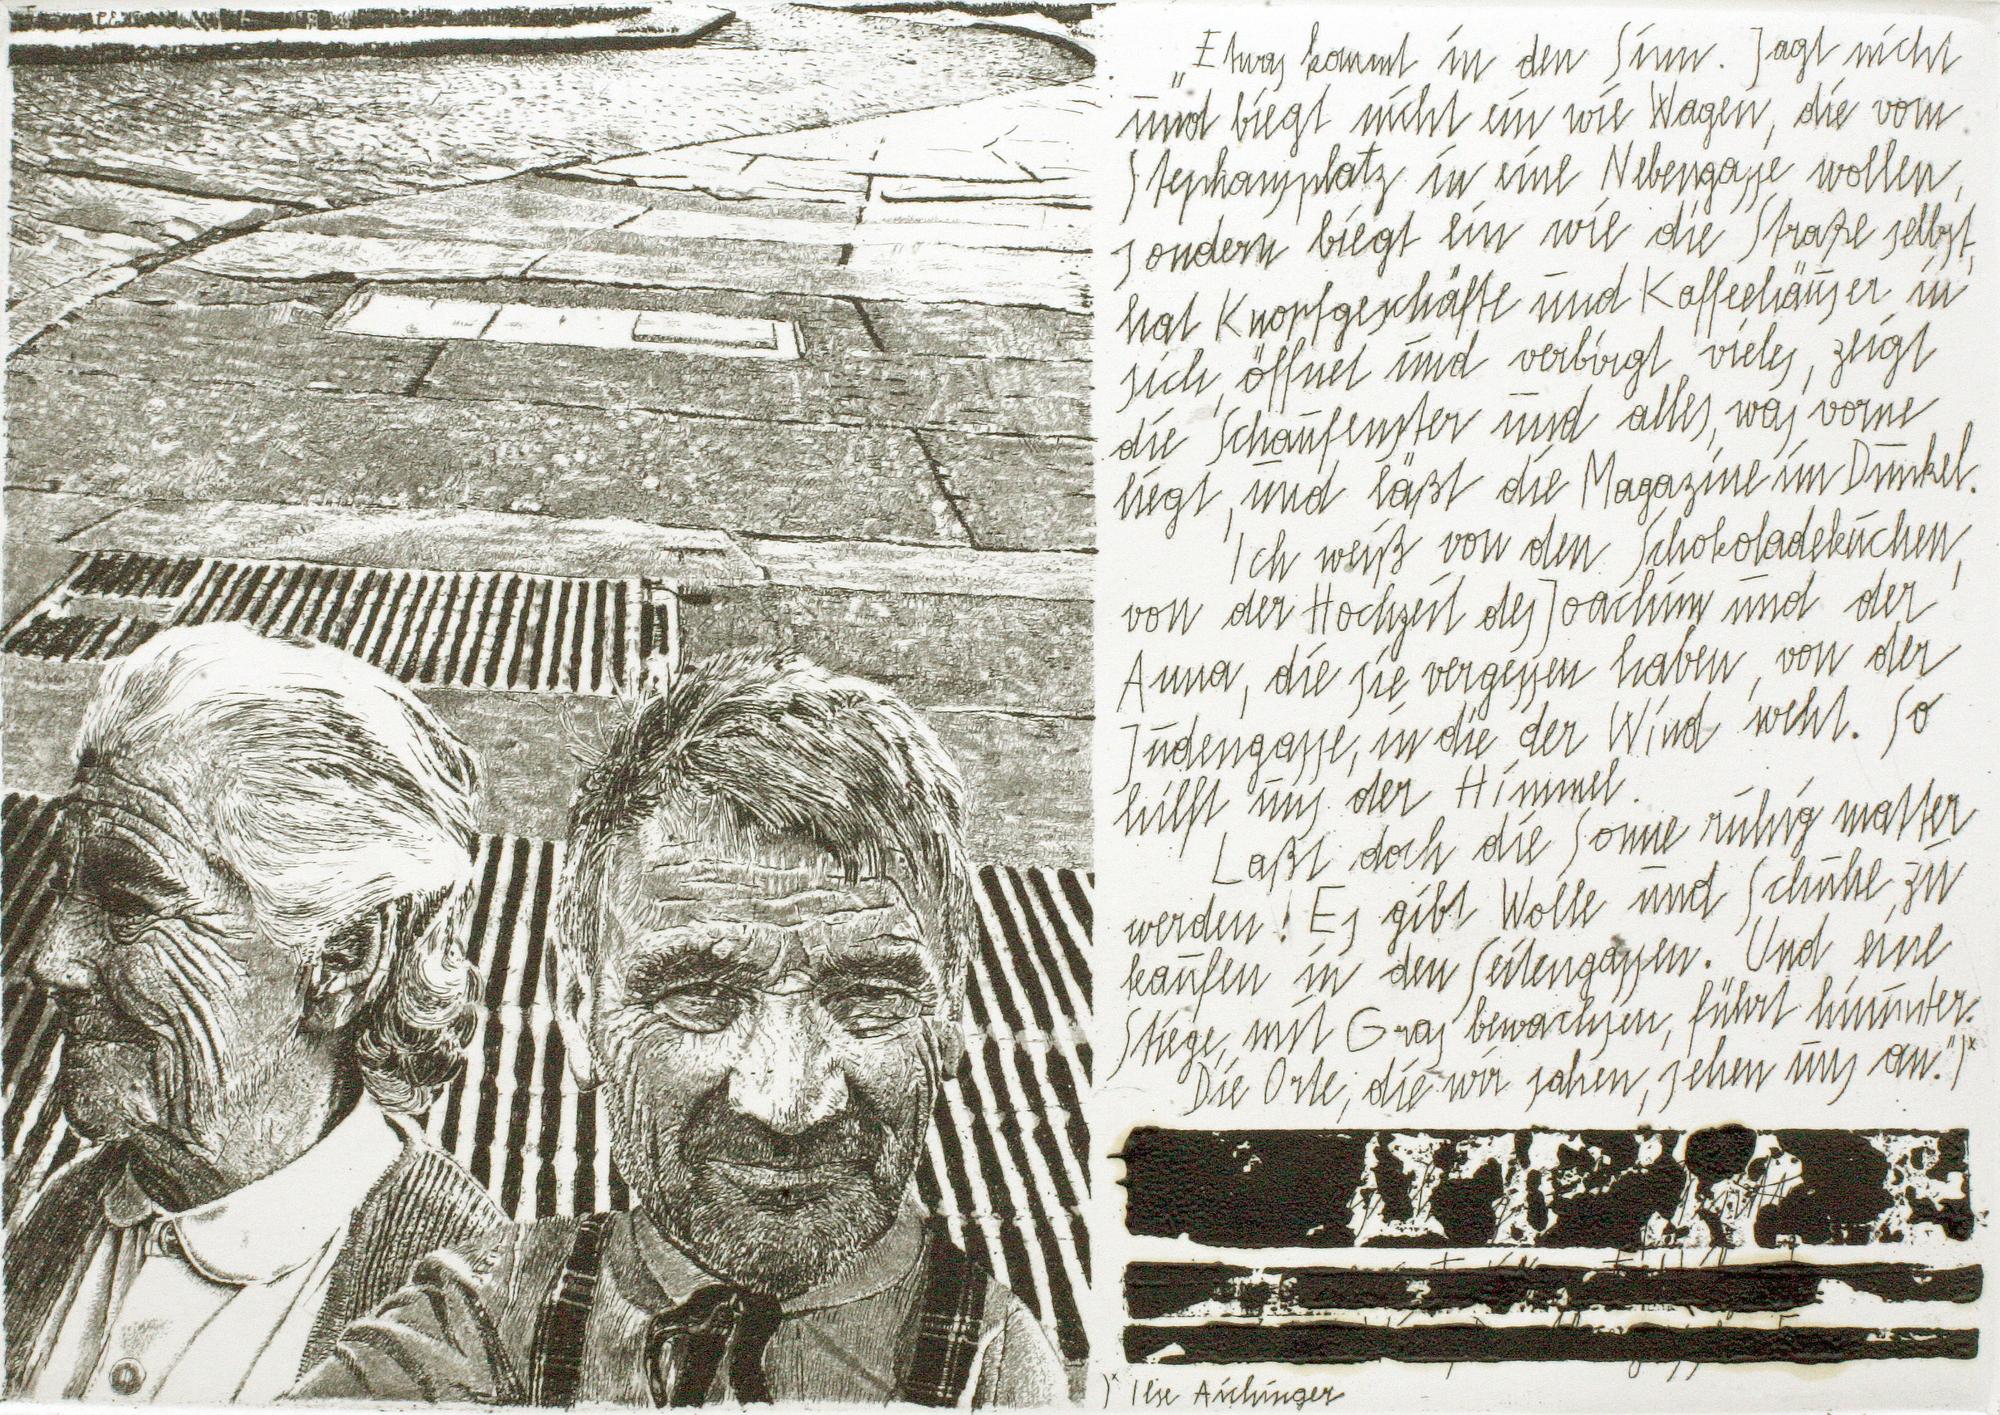 „Etwas kommt in den Sinn. Jagt nicht
und biegt nicht ein wie Wagen, die vom
Stephansplatz in eine Nebengasse wollen,
sondern biegt ein wie die Straße selbst,
hat Knopfgeschäfte und Kaffeehäuser in
sich, öffnet und verbirgt vieles, zeigt
die Schaufenster und alles, was vorne
liegt, und läßt die Magazine im Dunkel.
Ich weiß von den Schokoladeküchen,
von der Hochzeit des Joachim und der
Anna, die sie vergessen haben, von der
Judengasse, in die der Wind weht. So
hilft uns der Himmel.
Laßt doch die Sonne ruhig matter
werden! Es gibt Wolle und Schuhe zu
kaufen in den Seitengassen. Und eine
Stiege, mit Gras bewachsen, führt hinunter.
Die Orte, die wir sahen, sehen uns an.")*
)* Ilse Aichinger